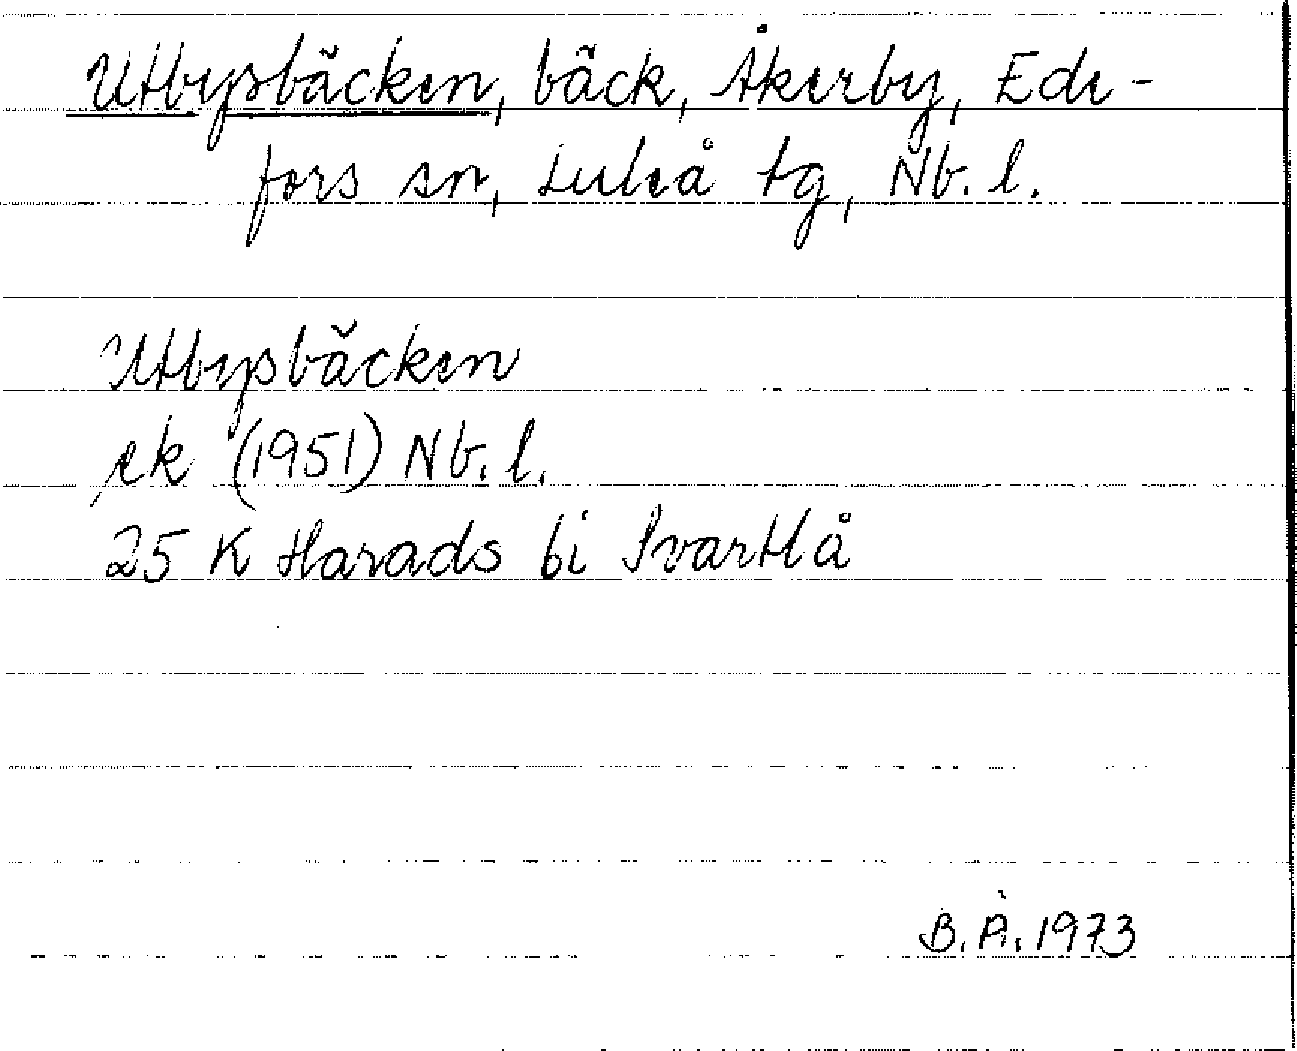 Utbysbäcken, bäck, Åkerby, Ede-
fors sn, Luleå tg, Nb. l.
Utbysbäcken
ek (1951) Nb. l.
25 K Harads bi Svartlå
B. Å. 1973